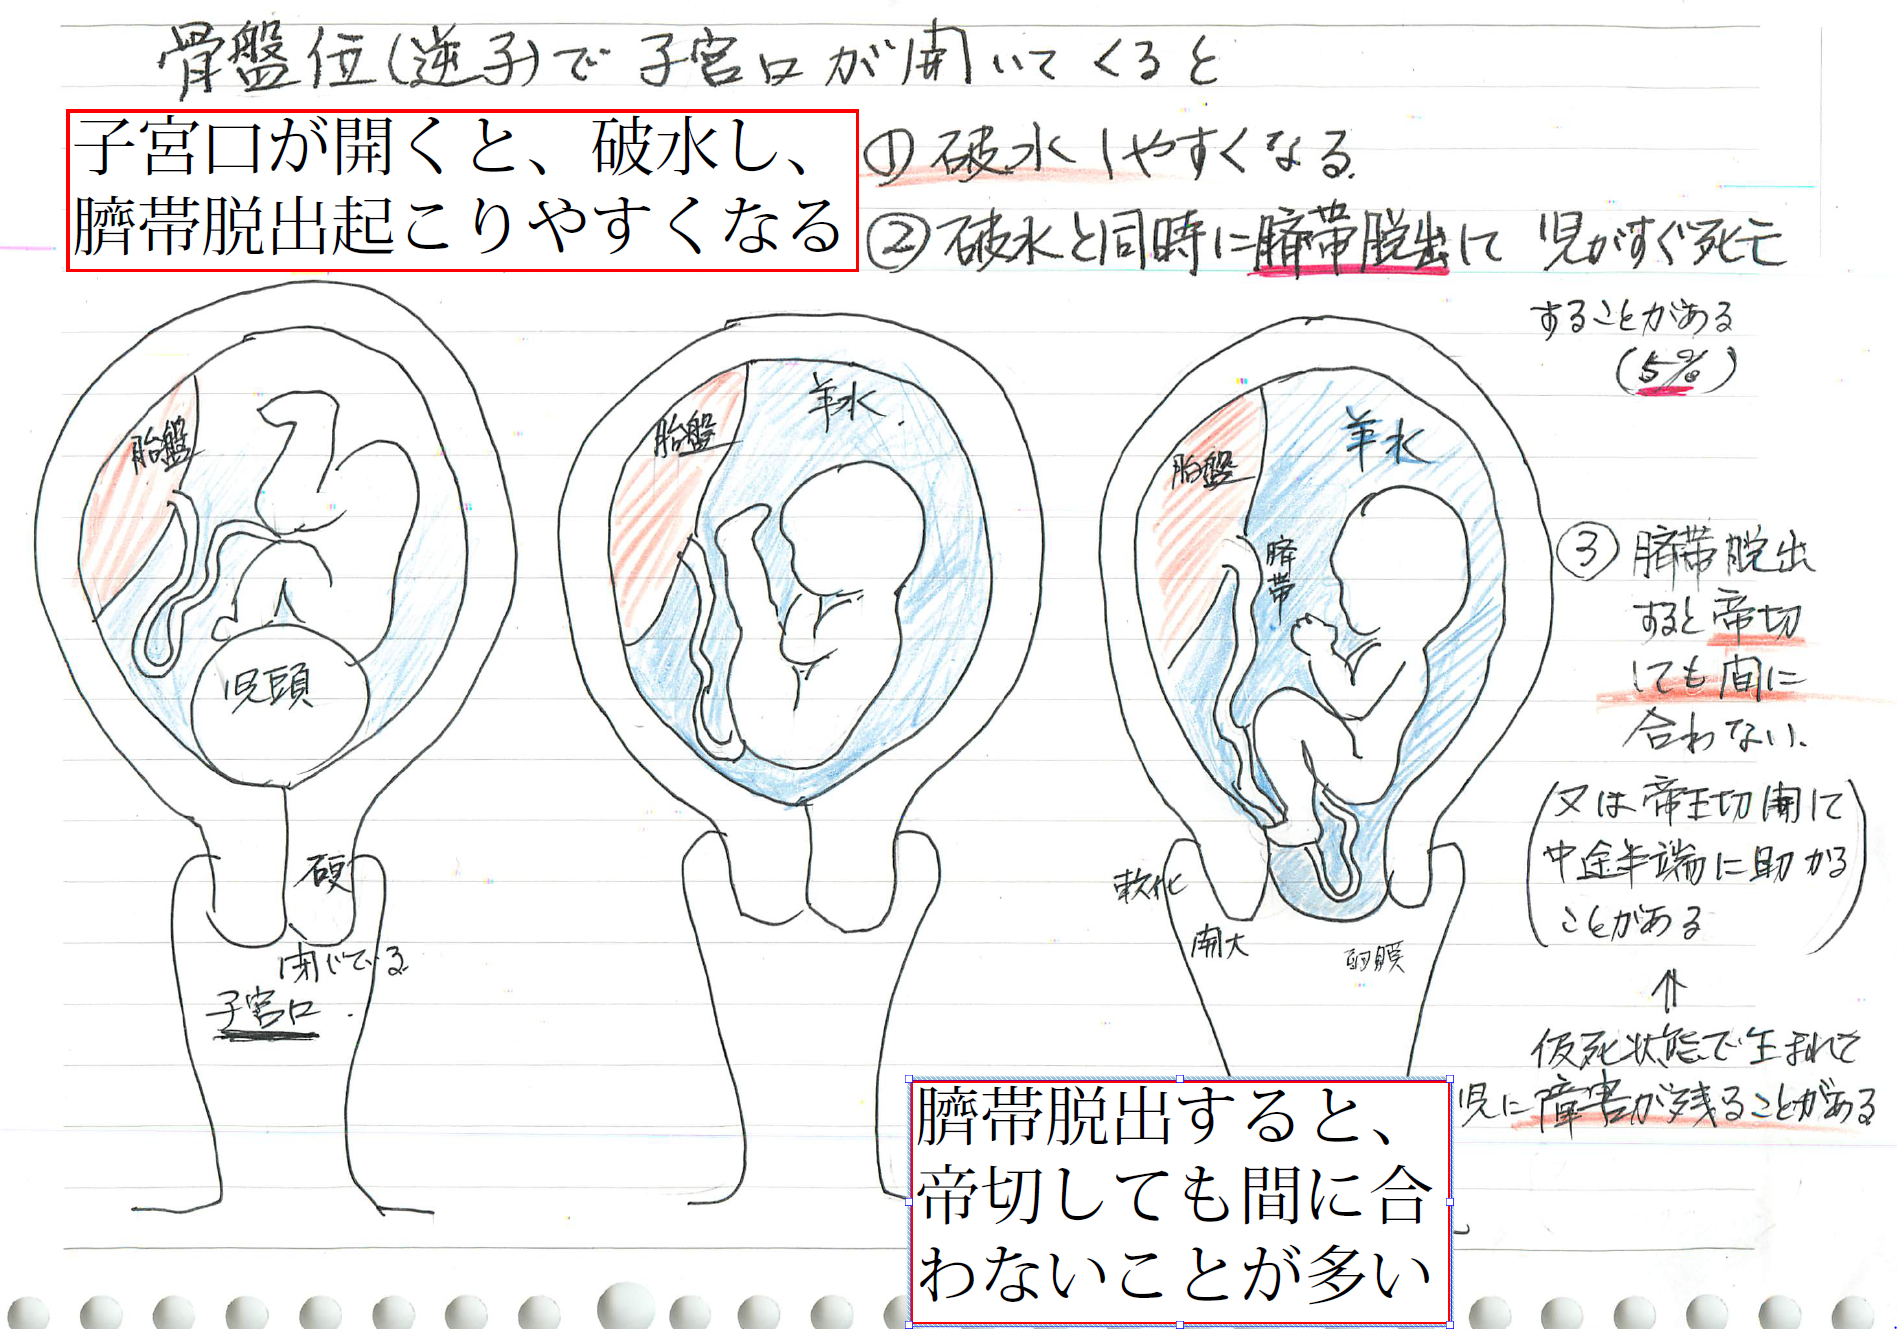 骨盤位(逆子)で子宮口が開いてくると
子宮口が開くと、破水し、
臍帯脱出起こりやすくなる
① 破水しやすくなる.
② 破水と同時に臍帯脱出して 児がすぐ死亡
することがある
(5%)
胎盤
児頭
硬
閉じている
子宮口.
胎盤
羊水.
胎盤
羊水
臍帯
軟化
開大
卵膜
③ 臍帯脱出
すると帝切
しても間に
合わない.
(又は帝王切開して
中途半端に助かる
ことがある)
⇑
仮死状態で生まれて
児に障害が残ることがある
臍帯脱出すると、
帝切しても間に合
わないことが多い